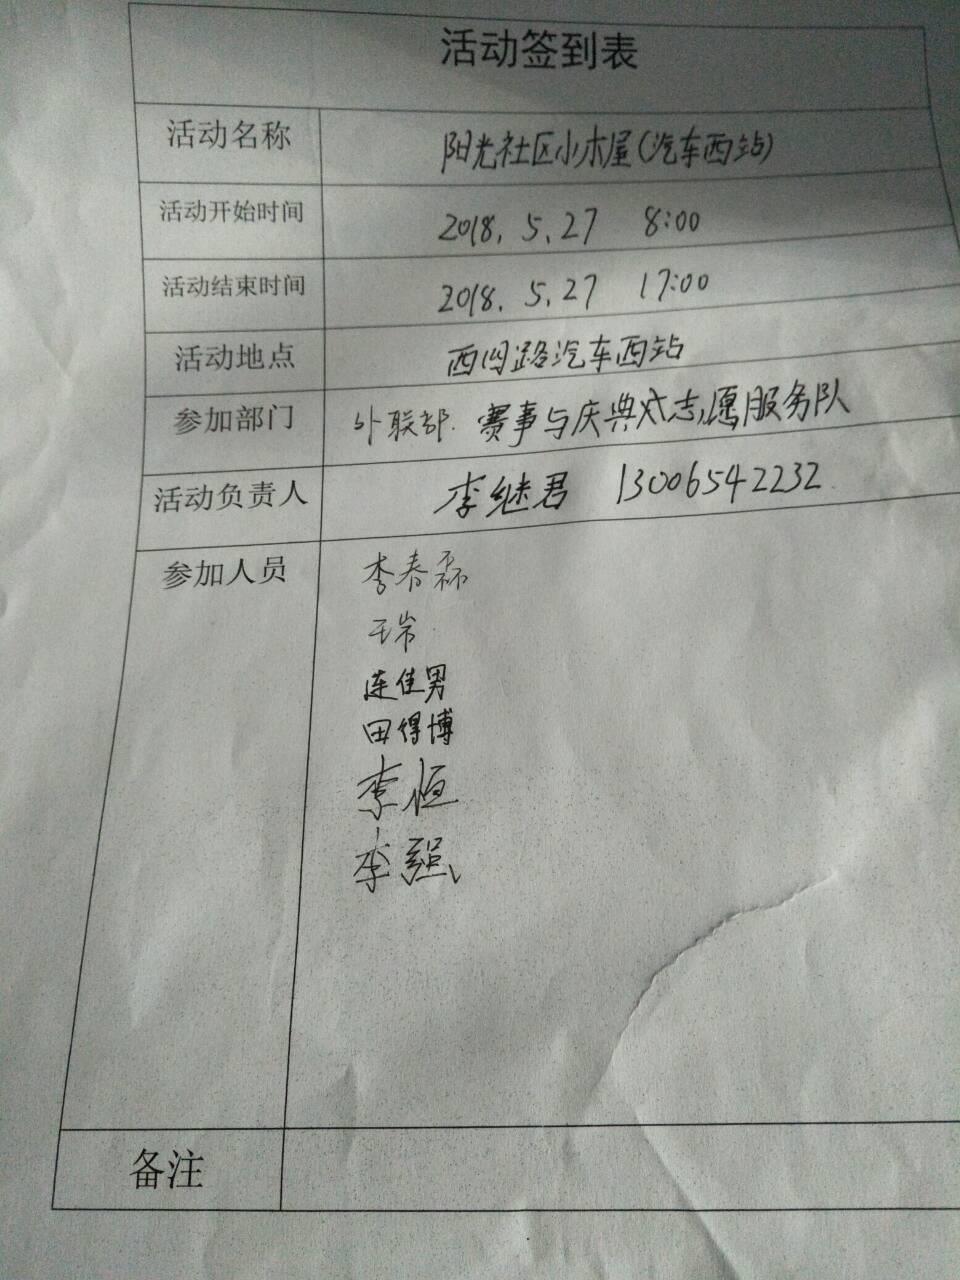 活动签到表
活动名称 阳光社区小木屋(汽车西站)
活动开始时间 2018.5.27 8:00
活动结束时间 2018.5.27 17:00
活动地点 西四路汽车西站
参加部门 外联部.赛事与庆典式志愿服务队
活动负责人 李继君 13006542232
参加人员 李春霖
连佳男
田得博
李恒
李强
备注